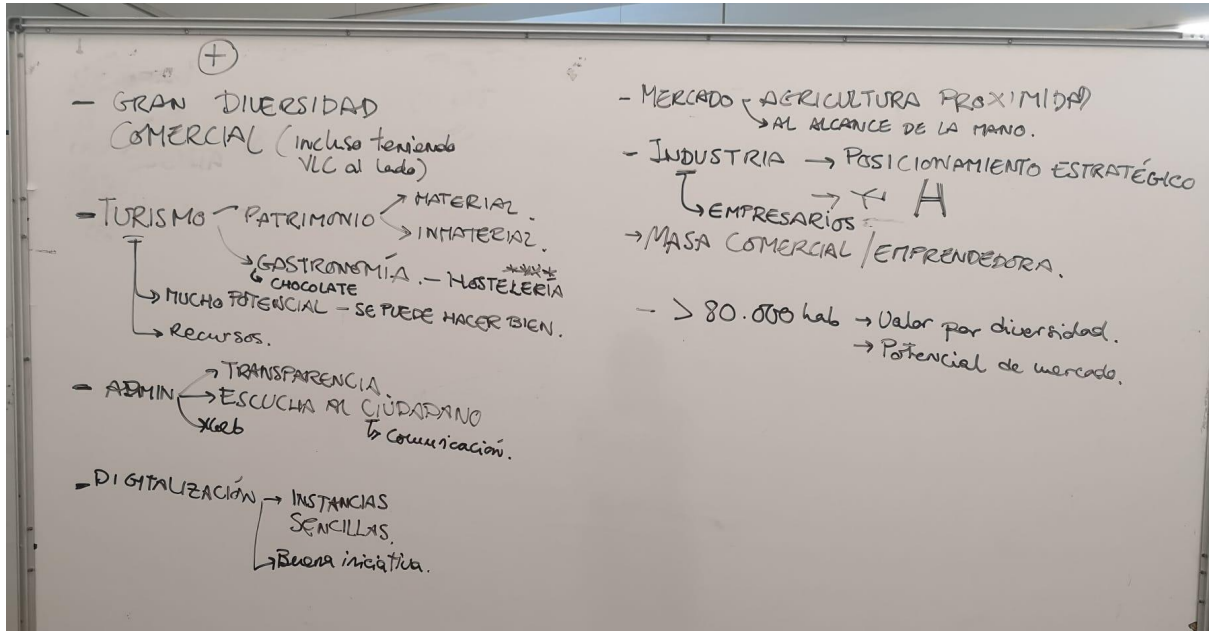 +
- GRAN DIVERSIDAD
COMERCIAL (incluso teniendo
VLC al lado)
- TURISMO → PATRIMONIO → MATERIAL.
→ INMATERIAL.
→ GASTRONOMÍA. - HOSTELERÍA
↳ CHOCOLATE
→ MUCHO POTENCIAL - SE PUEDE HACER BIEN.
→ Recursos.
- ADMIN → TRANSPARENCIA
→ ESCUCHA AL CIUDADANO
↳ Comunicación.
- DIGITALIZACIÓN → INSTANCIAS
SENCILLAS.
→ Buena iniciativa.
- MERCADO - AGRICULTURA PROXIMIDAD
→ AL ALCANCE DE LA MANO.
- INDUSTRIA → POSICIONAMIENTO ESTRATÉGICO
→ EMPRESARIOS
→ MASA COMERCIAL / EMPRENDEDORA.
- > 80.000 hab → Valor por diversidad.
→ Potencial de mercado.